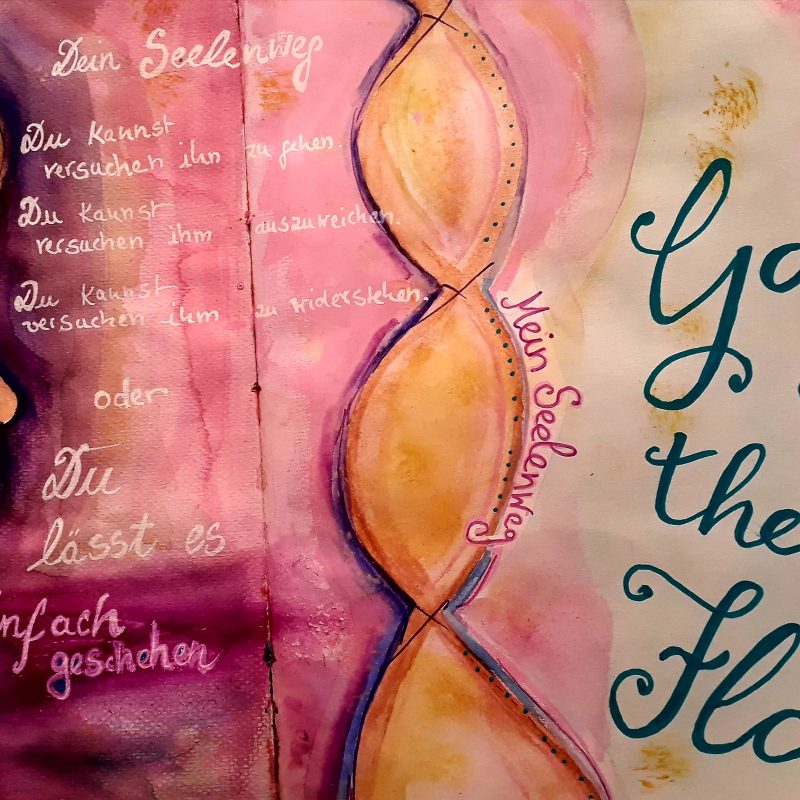 Dein Seelenweg
Du kannst
versuchen ihn zu gehen.
Du kannst
versuchen ihm auszuweichen.
Du kannst
versuchen ihm zu widerstehen.
oder
Du
lässt es
infach
geschehen
Mein Seelenweg
Go
the
Flo